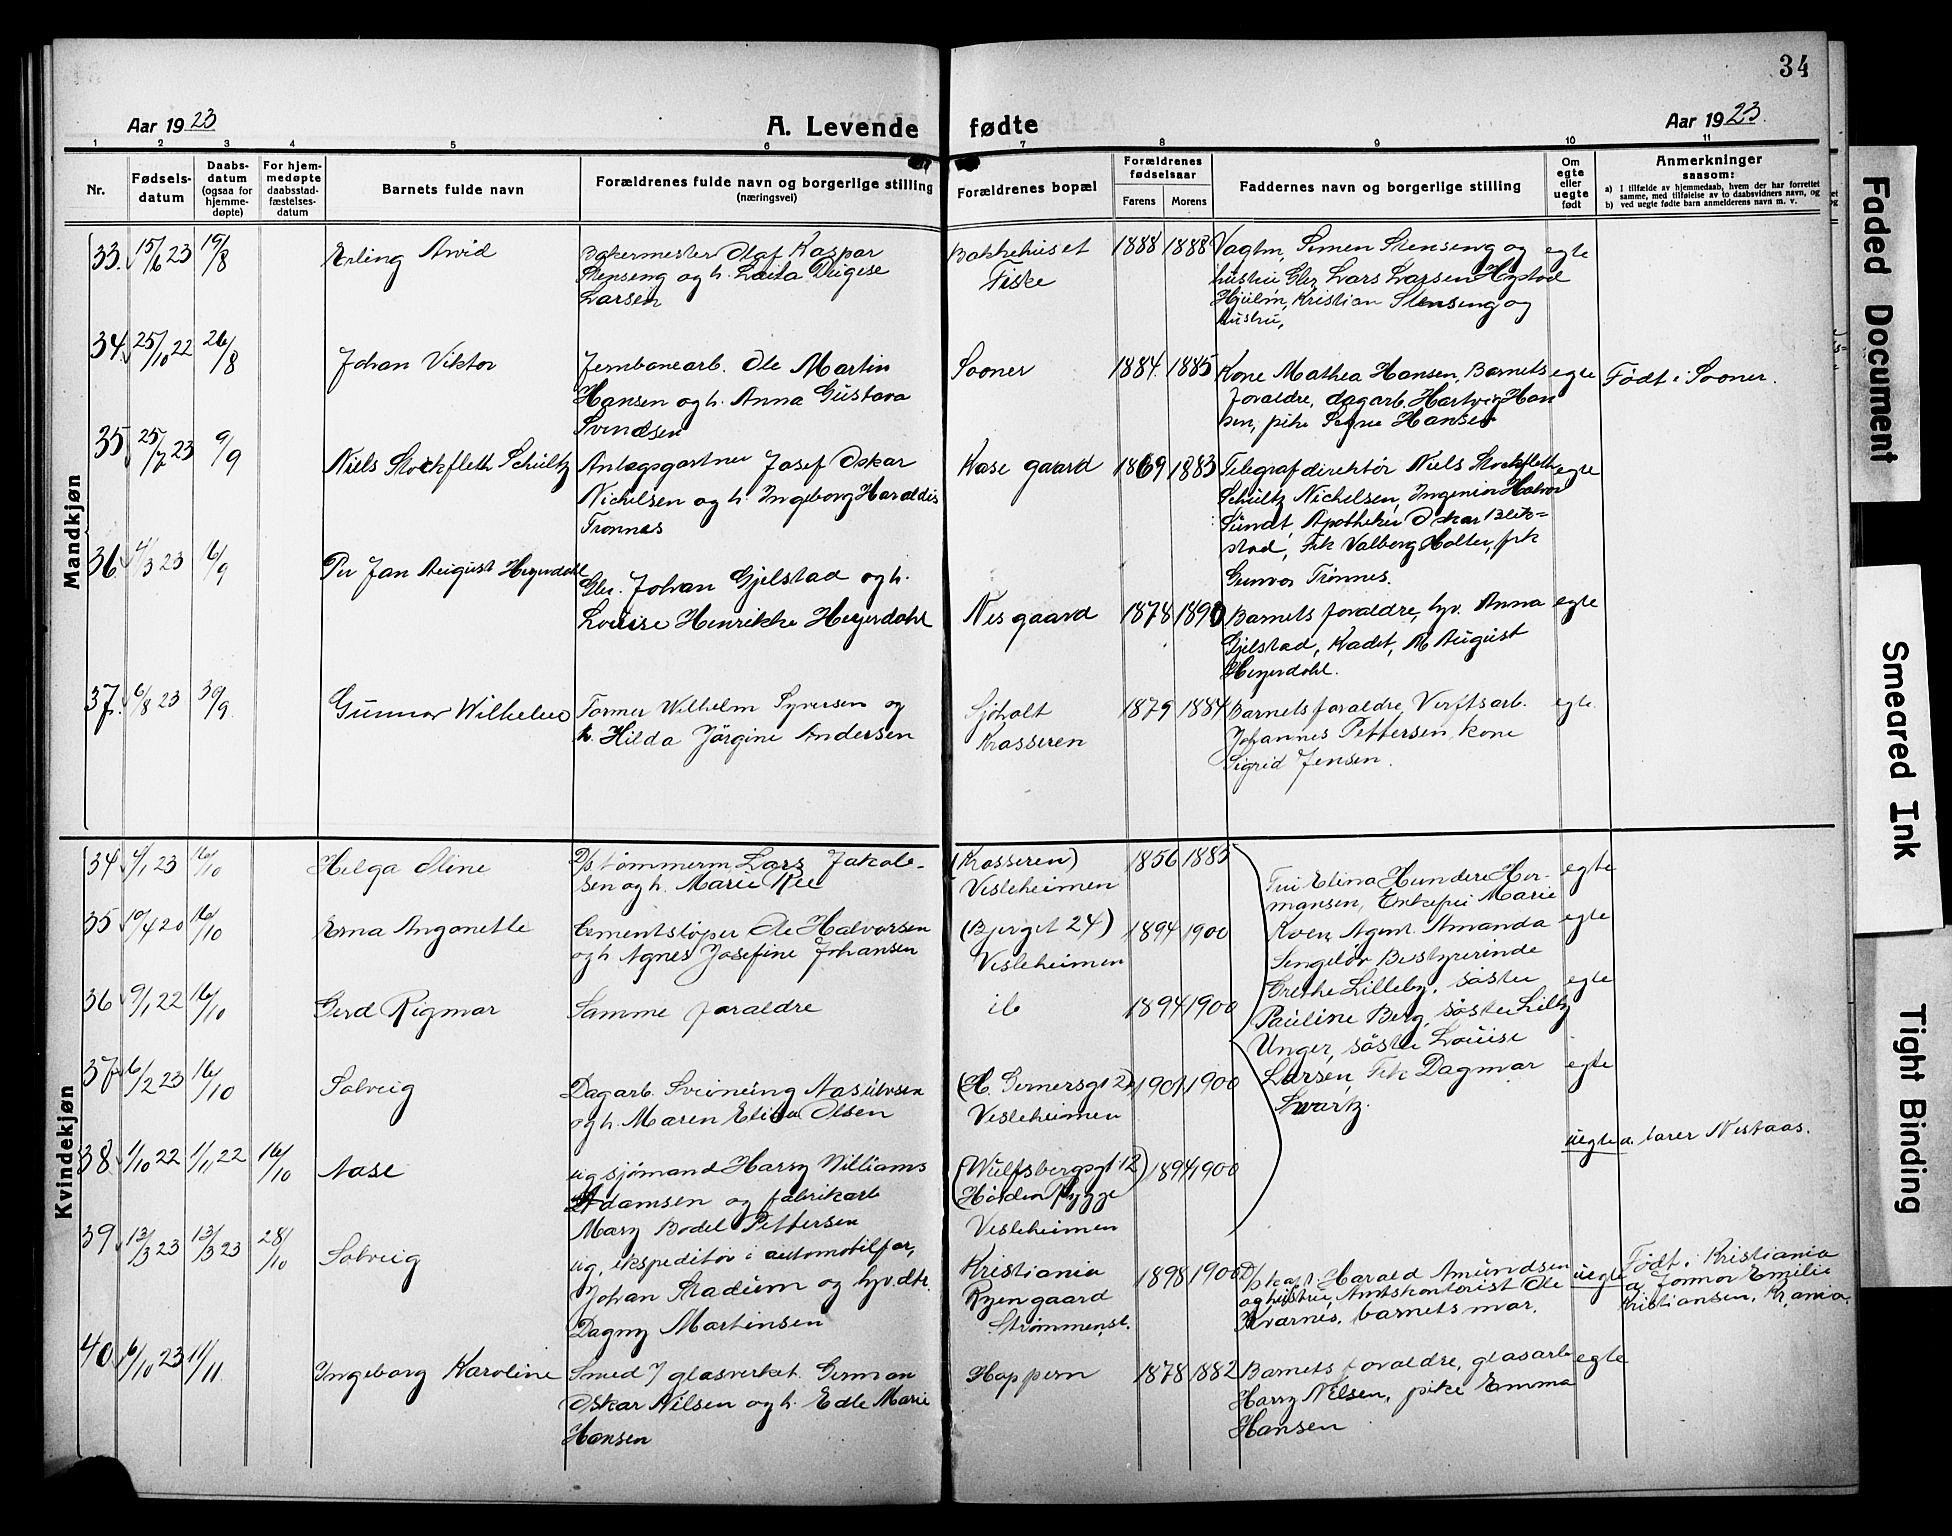 34
Aar 1923
A. Levende fødte
Aar 1923.
1 2 3 4 5 6 7 8 9 10 11
Nr.
Fødsels-
datum
Daabs-
datum
(ogsaa for
hjemme-
døpte)
For hjem-
medøpte
daabsstad-
fæstelses-
datum
Barnets fulde navn
Forældrenes fulde navn og borgerlige stilling
(næringsvei)
Forældrenes bopæl
Forældrenes
fødselsaar
Farens
Morens
Faddernes navn og borgerlige stilling
Om
egte
eller
uegte
født
Anmerkninger
saasom:
a) I tilfælde av hjemmedaab, hvem der har forrettet
samme, med tilføielse av to daabsvidners navn, og
b) ved uegte fødte barn anmelderens navn m. v.
Mandkjøn
33. 15/6 23 19/8
Erling Arvid
Bakermester Olaf Kaspar
Stenseng og h. Laila
Larsen
Bakkehuset
Fiske
1888 1888
Vagtm, Simen Stenseng og
hustru Lars Larsen
Kristian Stenseng og
hustru,
egte
34 25/10 22 26/8
Johan Viktor
Jernbanearb. Ole Martin
Hansen og h. Anna Gustava
Svendsen
Sooner
1884. 1885
Kone Mathea Hansen, Barnets
foraldre, dagarb. Hartvig Han
sen, pike Signe Hansen
egte
Født i Sooner.
35 25/7 23 9/9
Niels Stockfleth Schultz
Anlægsgartner Josef Oskar
Nichelsen og h. Ingeborg Haraldis
Tronnes
Kase gaard
1869 1883
Telegrafdirektør Niels Stockfleth
Schultz Nichelsen, Ingeniør Halvor
Sundt, Apotheker Oskar
stad, Frk Valborg Holter, frk
Gunvor Trønnes.
egte
36 4/3 23 6/9
Per Jan August Heyerdahl
Johan Gjelstad og h.
Louise Henrikke Heyerdahl
Nes gaard
1878 1890
Barnets foraldre, hv. Anna
Gjelstad, Kadet, August
Heyerdahl.
egte
37. 6/8 23 30/9
Gunnar Wilhelm
Former Wilhelm Syversen og
h. Hilda Jörgine Andersen
Sjøholt
Krosseren
1879 1884
Barnets foraldre, Verftsarb.
Johannes Pettersen, kone
Sigrid Jensen.
egte
Kvindekjøn
34 4/1 23 16/10
Helga Oline
D/s tømmerm Lars Jakob-
sen og h. Marie
(Krosseren)
Vesleheimen
1856 1885
Fru Elina Hundere Her-
mansen, Marie
egte
35 10/4 20 16/10
Erna Angonette
Cementstøper Ole Halvorsen
og h. Agnes Josefine Johansen
(Bjerget 24)
Vesleheimen
1894 1900
Amanda
Bestyrerinde
egte
36 9/1 22 16/10
Gerd Rigmor
Samme foraldre
ib
1894 1900
Grethe Lilleby, søster
Pauline Berg, søster Lilly
Unger, søster Louise
egte
37 6/2 23 16/10
Solveig
Dagarb. Sveinung
og h. Maren Olsen
(H. Gernersgt 2)
Vesleheimen
1901 1900
Larsen, Frk Dagmar
Swartz.
egte
38 1/10 22 1/11 22 16/10
Aase
ug sjømand Harry Williams
Adamsen og fabrikarb
Mary Bodel Pettersen
(Wulfsbergsgt 12)
Vesleheimen
1894 1900
uegte
a. lærer Nestaas.
39 13/3 23 13/3 23 28/10
Solveig
ug. ekspeditør i automobilfor,
Johan Stadum og hv. dtr.
Dagny Martinsen
Kristiania
Ryengaard
Strømmenst.
1898 1900
D/s kapt. Harald Amundsen
og hustru, Amtskontorist Ole
Kvarnes, barnets mor.
uegte
Født i Kristiania
a formor Emilie
Kristiansen, Kr,ania.
40 16/10 23 11/11
Ingeborg Karoline
Smed / glasverket German
Oskar Nilsen og h. Edle Marie
Hansen
Happern
1878 1882
Barnets foraldre, glasarb
Harry Nilsen, pike Emma
Hansen
egte
Faded Document
Smeared Ink
Tight Binding